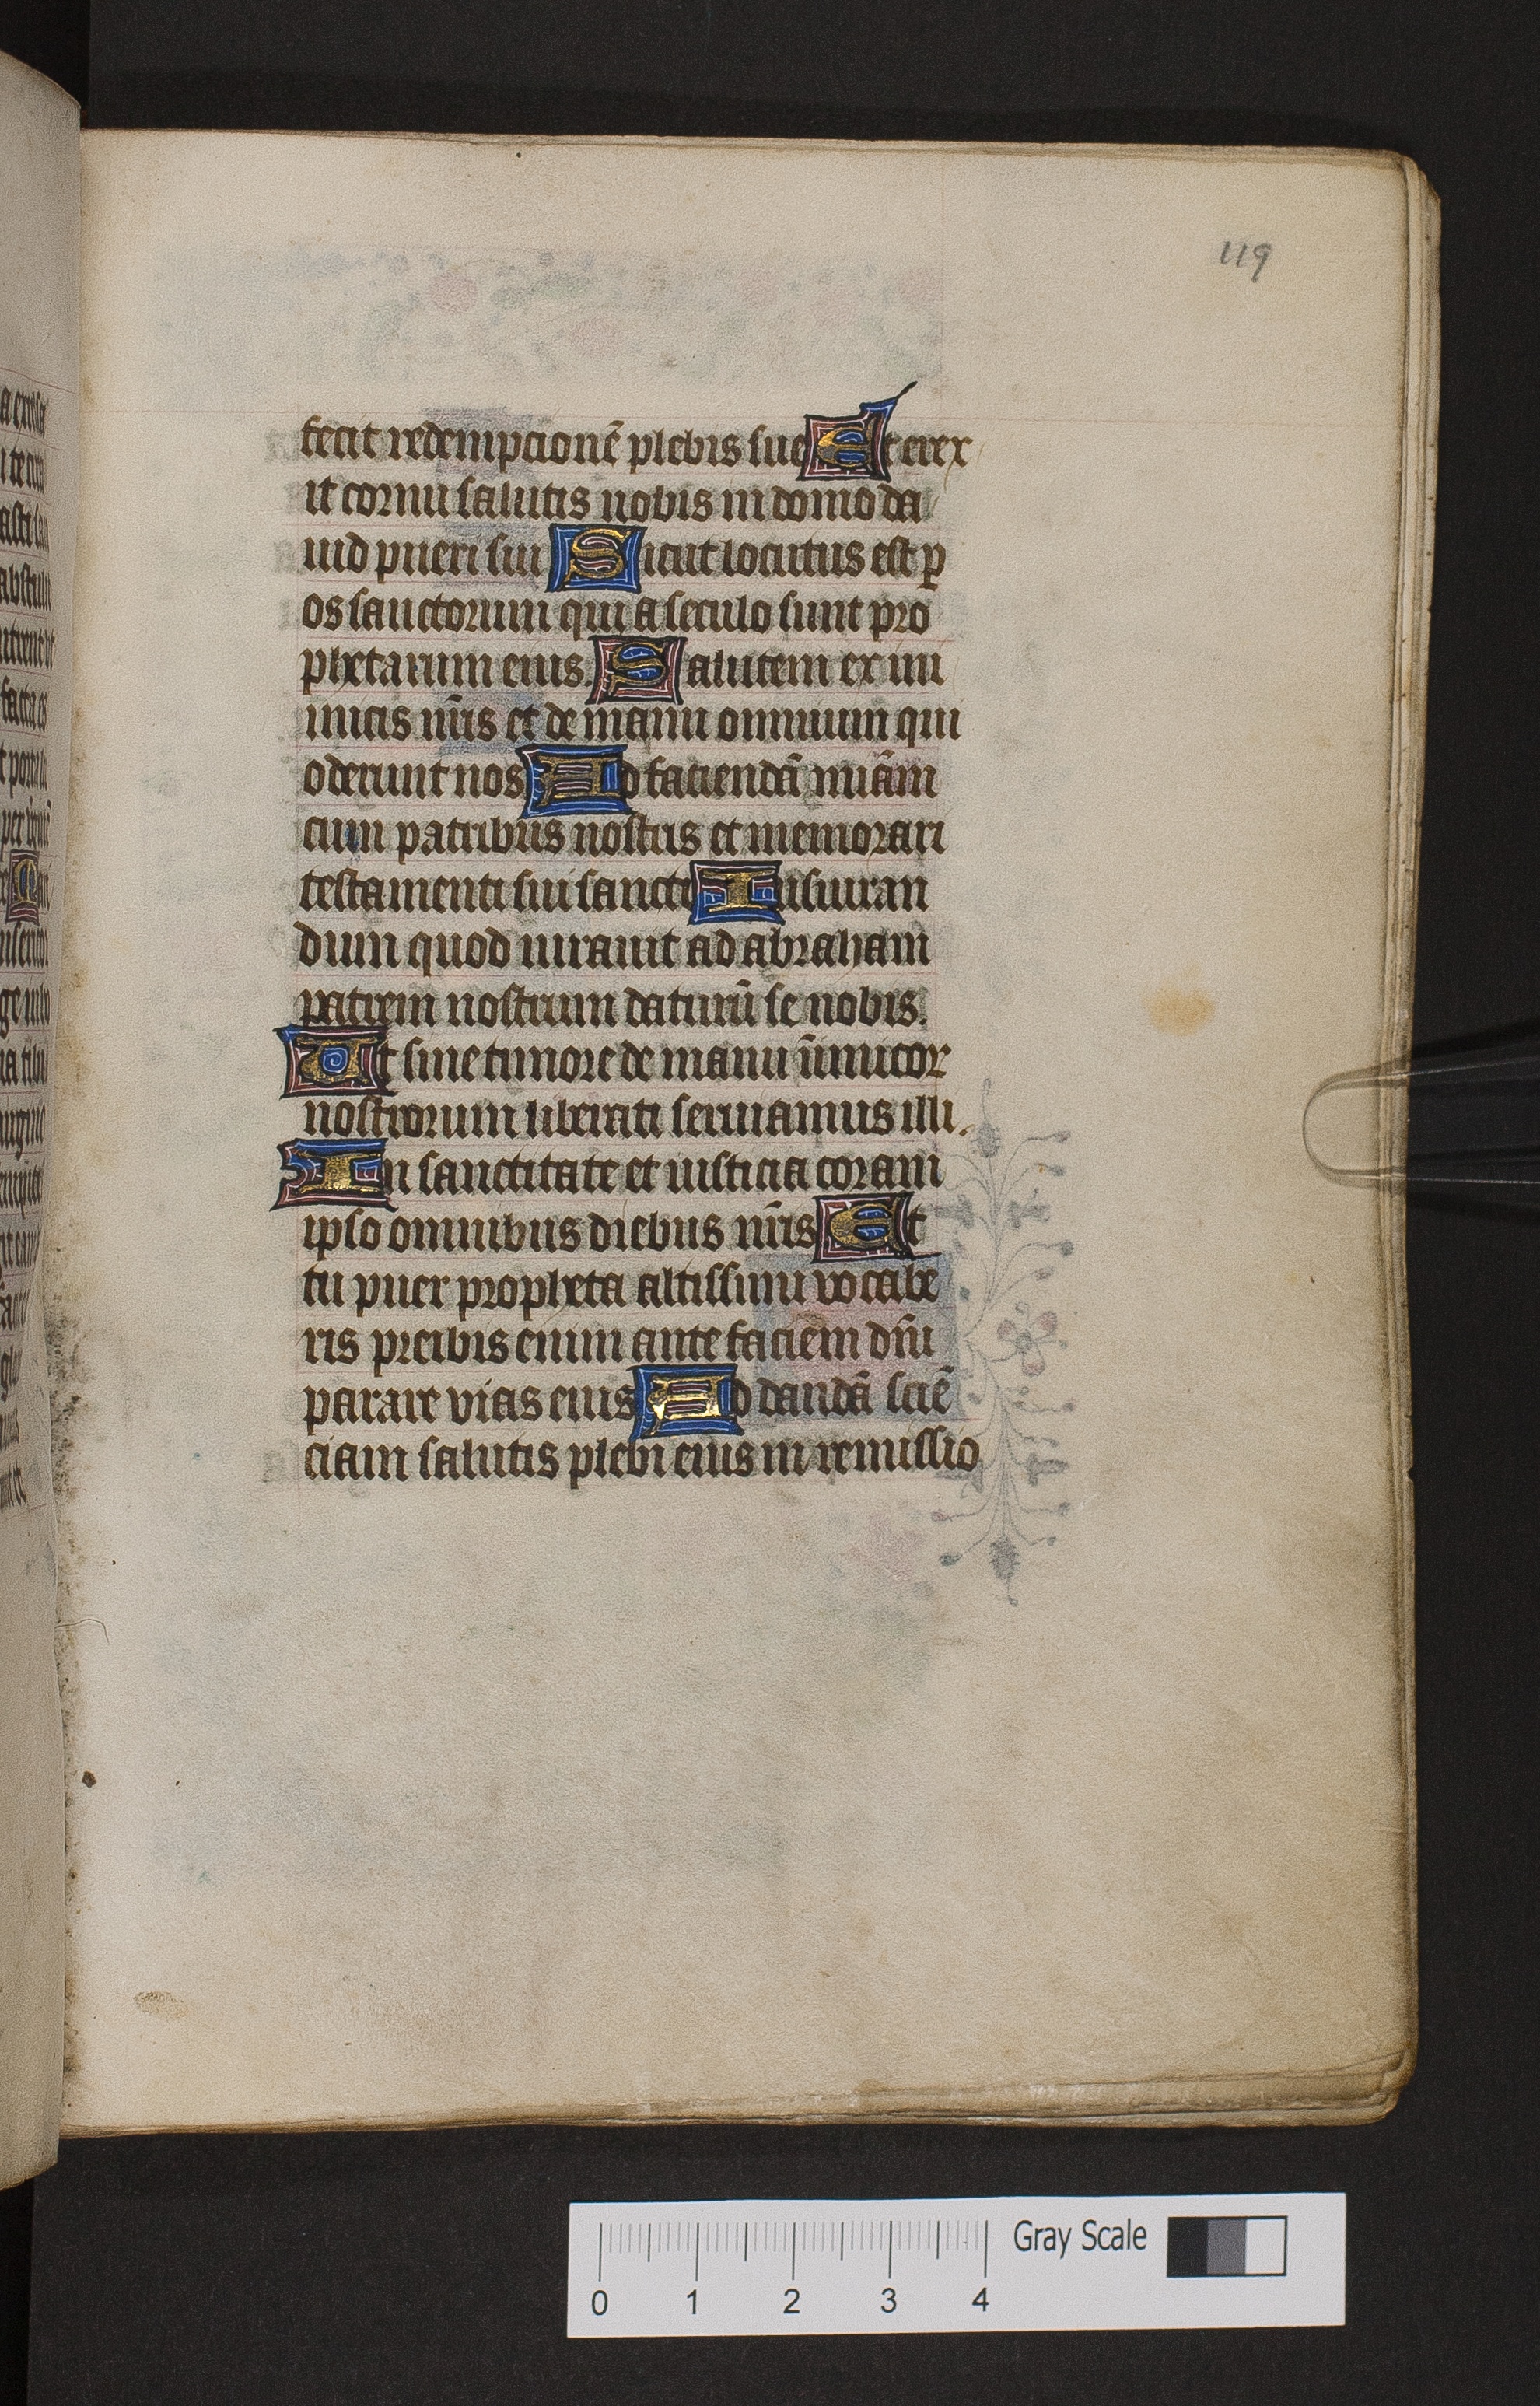 119
fecit redempcionē plebis sue Et erex
it cornu salutis nobis in domo da
uid pueri sui Sicut locutus est ꝑ
os sanctorum qui a seculo sunt pro
phetarum eius. Salutem ex ini
micis nr̄is et de manu omnium qui
oderunt nos Ad faciendā miām
cum patribus nostris et memorari
testamenti sui sancti Iusiuran
dum quod iurauit ad abraham
patrem nostrum daturū se nobis.
Ut sine timore de manu īimicor
nostrorum liberati seruiamus illi.
In sanctitate et iusticia coram
ipso omnibus diebus nr̄is Et
tu puer propheta altissimi vocabe
ris preibis enim ante faciem dn̄i
parare vias eius Ad dandā sciē
ciam salutis plebi eius in remissio
Gray Scale
0 1 2 3 4